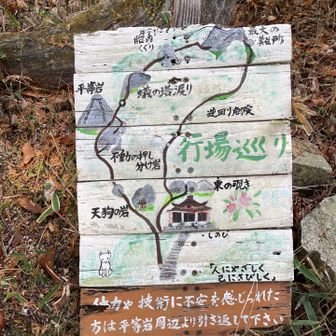 胎内
くぐり
最大の
難所
平等岩
蟻の塔渡り
逆回り危険
行場巡り
不動の押し
分け岩
東の覗き
天狗の岩
しのび
「人にやさしく
己にきびしく」
体力や技術に不安を感じられた
方は平等岩周辺より引き返して下さい